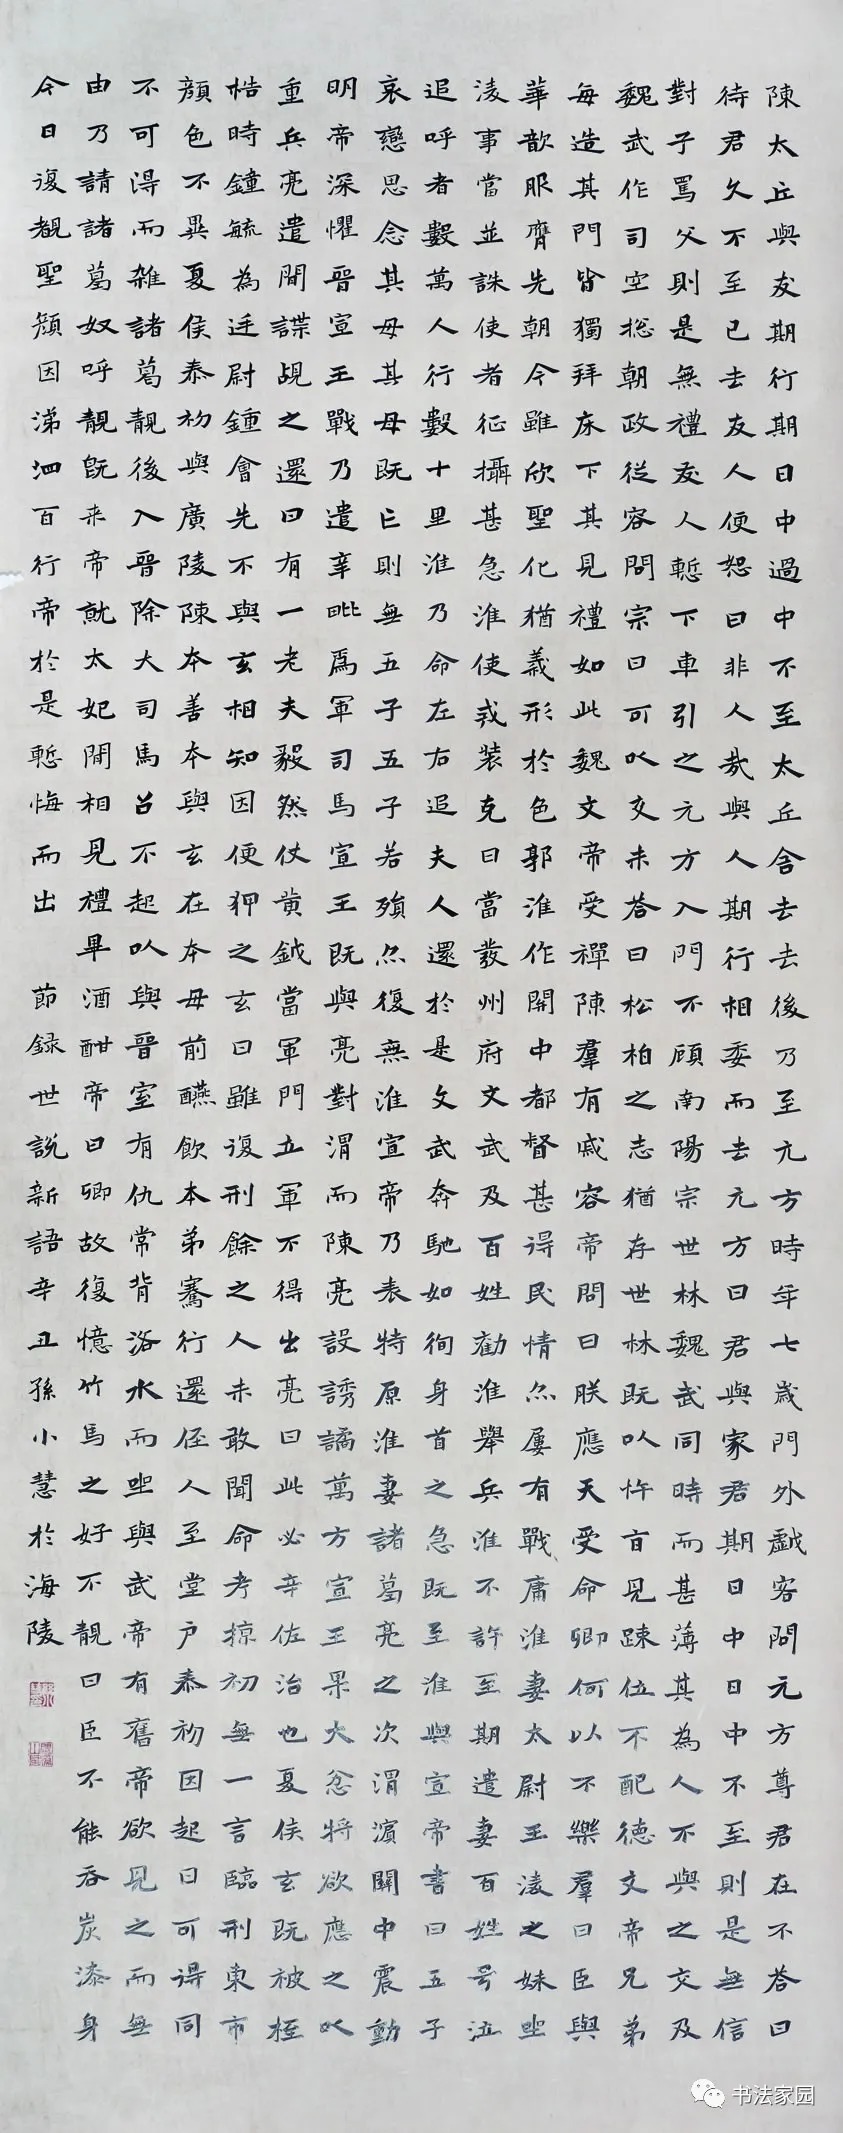 陳太丘與友期行期日中過中不至太丘舍去去後乃至元方時年七歲門外戲客問元方尊君在不答曰
待君久不至已去友人便怒曰非人哉與人期行相委而去元方曰君與家君期日中日中不至則是無信
對子罵父則是無禮友人慙下車引之元方入門不顧南陽宗世林魏武同時而甚薄其為人不與之交及
魏武作司空捴朝政從容問宗曰可以交未答曰松柏之志猶存世林既以忤旨見踈位不配德文帝兄弟
每造其門皆獨拜床下其見禮如此魏文帝受禪陳羣有戚容帝問曰朕應天受命卿何以不樂羣曰臣與
華歆服膺先朝今雖欣聖化猶義形於色郭淮作關中都督甚得民情亦屢有戰庸淮妻太尉王淩之妹坐
淩事當並誅使者征攝甚急淮使戎裝克日當發州府文武及百姓勸淮舉兵淮不許至期遣妻百姓号泣
追呼者數萬人行數十里淮乃命左右追夫人還於是文武奔馳如徇身首之急既至淮與宣帝書曰五子
哀戀思念其母其母既亡則無五子五子若殞亦復無淮宣帝乃表特原淮妻諸葛亮之次渭濱關中震動
明帝深懼晉宣王戰乃遣辛毗為軍司馬宣王既與亮對渭而陳亮設誘譎萬方宣王果大忿將欲應之以
重兵亮遣間諜覘之還曰有一老夫毅然仗黄鉞當軍門立軍不得出亮曰此必辛佐治也夏侯玄既被桎
梏時鍾毓為廷尉鍾會先不與玄相知因便狎之玄曰雖復刑餘之人未敢聞命考掠初無一言臨刑東市
顏色不異夏侯泰初與廣陵陳本善本與玄在本母前醼飲本弟騫行還侄人至堂户泰初因起曰可得同
不可得而雜諸葛靚後入晉除大司馬召不起以與晉室有仇常背洛水而坐與武帝有舊帝欲見之而無
由乃請諸葛奴呼靚既来帝就太妃間相見禮畢酒酣帝曰卿故復憶竹馬之好不靚曰臣不能吞炭漆身
今日復覩聖顏因涕泗百行帝於是慙悔而出 節録世說新語辛丑孫小慧於海陵
书法家园